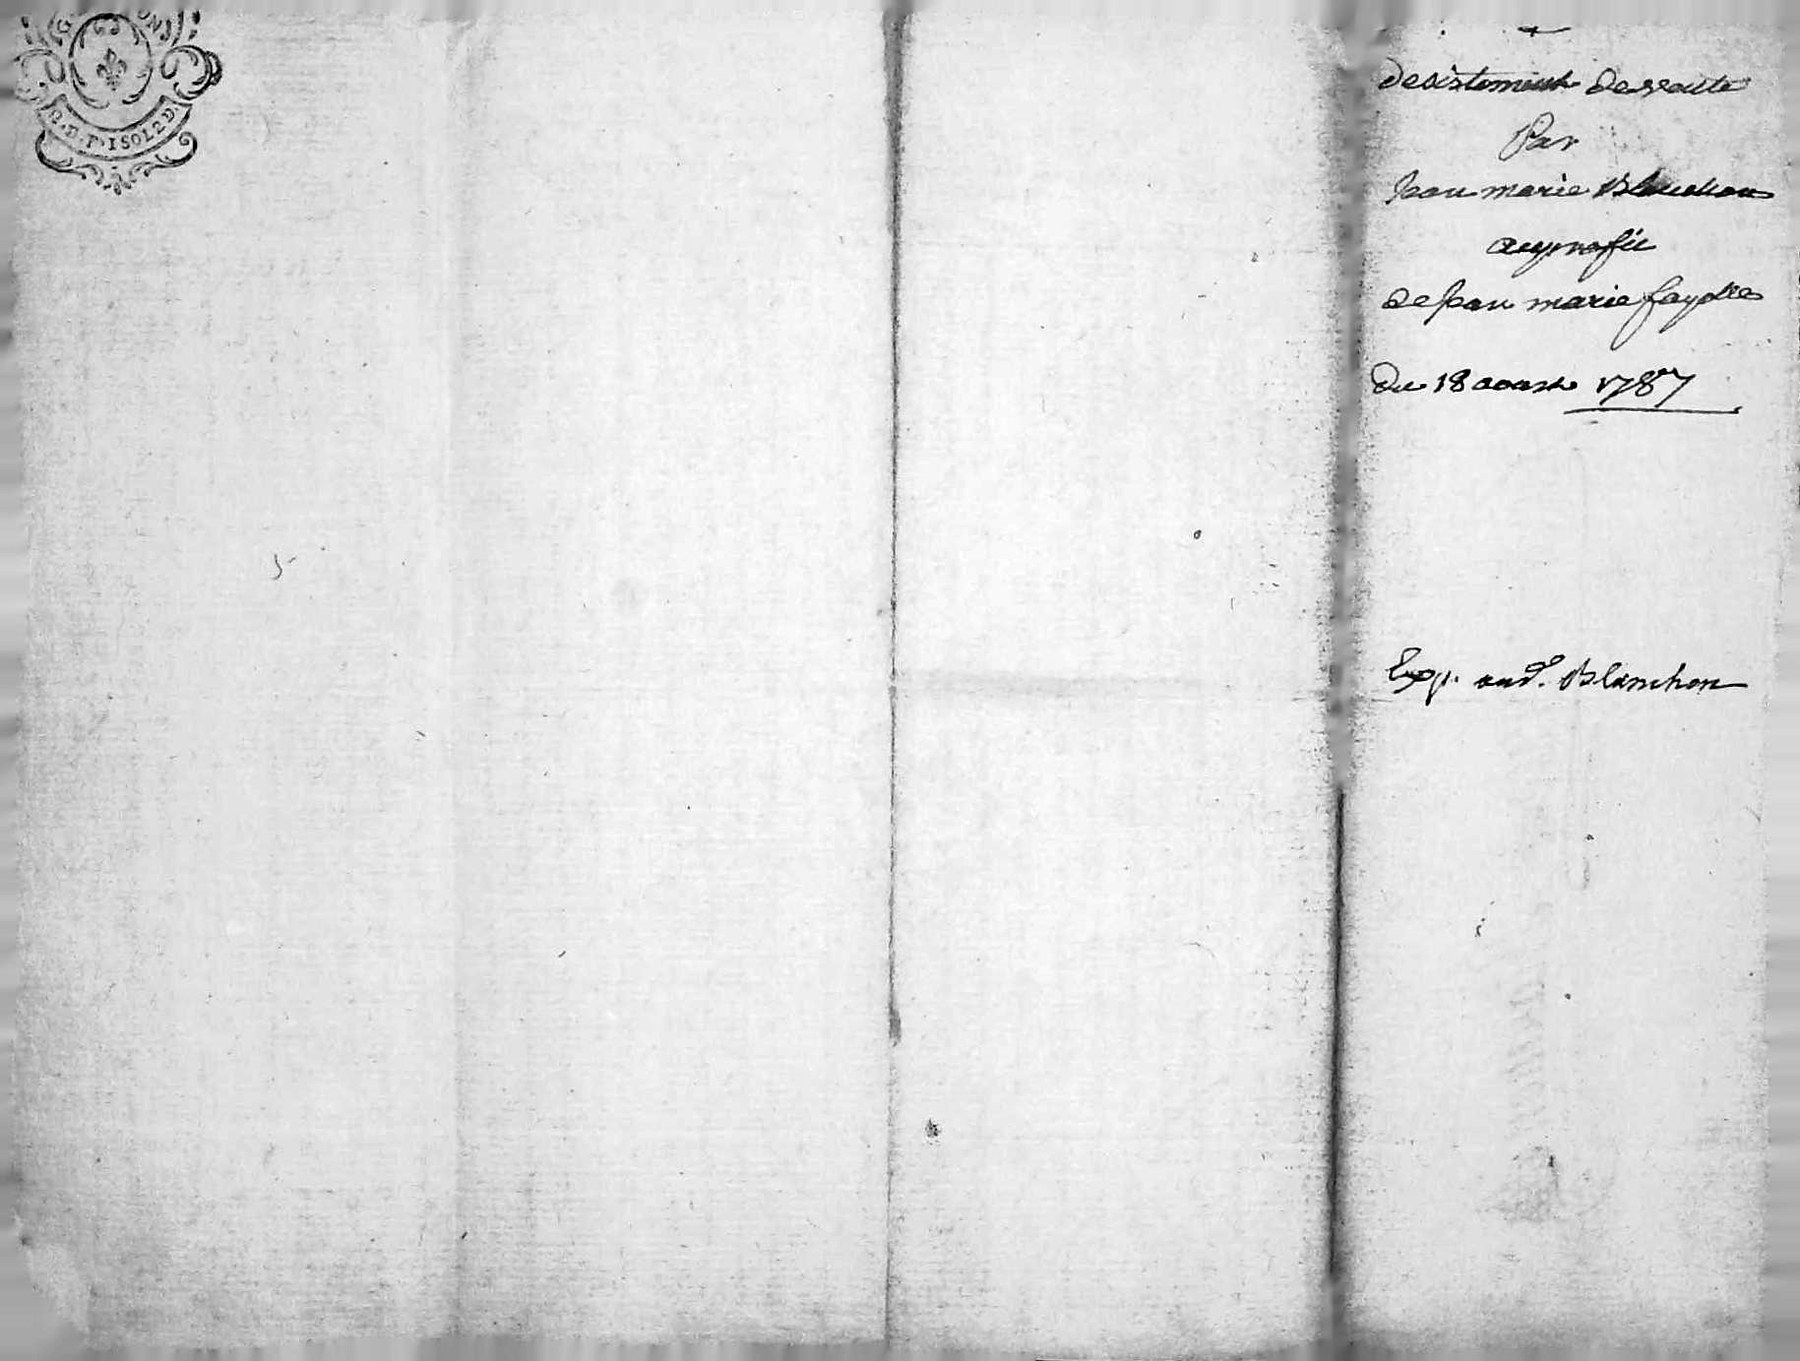 G ONS
Q.D.P. 1SOL2D.
desistement de vente
Par
Jean marie Blanchon
au profit
de Jean marie fayolle
Du 18 aoust 1787
Exp. aud. Blanchon